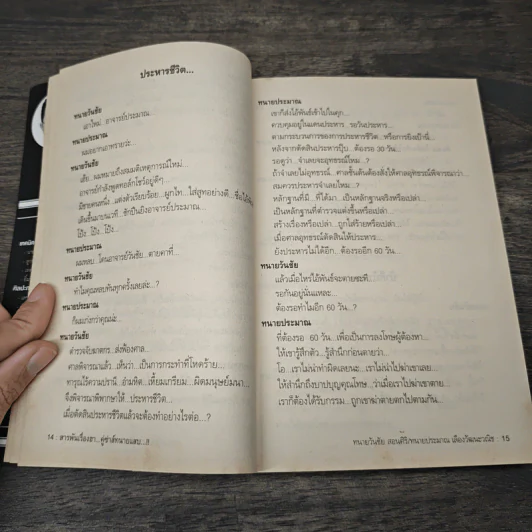 ประหารชีวิต...
ทนายวันชัย
เอาใหม่...อาจารย์ประมาณ...
ทนายประมาณ
ผมอยากเอาพรายวะ...
ทนายวันชัย
เฮ้ย...ผมหมายถึงสมมติเหตุการณ์ใหม่...
อาจารย์กำลังพูดทอล์กโชว์อยู่ดีๆ...
มีชายคนหนึ่ง...แต่งตัวเรียบร้อย...ผูกไท...ใส่สูทอย่างดี...
เดินขึ้นมาบนเวที...ชักปืนยิงอาจารย์ประมาณ...
โป้ง โป้ง โป้ง...
ทนายประมาณ
ผมหลบ...โดนอาจารย์วันชัย...ตายคาที่...
ทนายวันชัย
ทำไมคุณหลบทันทุกครั้งเลยละ...?
ทนายประมาณ
ก็ผมเก่งกว่าคุณน่ะ...
ทนายวันชัย
ตำรวจจับฆาตกร...ส่งฟ้องศาล...
ศาลพิจารณาแล้ว...เห็นว่า...เป็นการกระทำที่โหดร้าย...
ทารุณไร้ความปรานี...อำมหิต...เหี้ยมเกรียม...ผิดมนุษย์มนา...
จึงพิจารณาพิพากษาให้...ประหารชีวิต...
เมื่อตัดสินประหารชีวิตแล้วจะต้องทำอย่างไรต่อ...?
14 : สารพันเรื่องฮา...คู่ซ่าส์ทนายแสบ...!!
ทนายประมาณ
เขาก็ส่งไอ้พันธ์เข้าไปในคุก...
ควบคุมอยู่ในแดนประหาร...รอวันประหาร...
ตามกระบวนการของการประหารชีวิต...หรือการยิงเป้านี่...
หลังจากตัดสินประหารปุ๊บ...ต้องรอ 30 วัน...
รอดูว่า...จำเลยจะอุทธรณ์ไหม...?
ถ้าจำเลยไม่อุทธรณ์...ศาลชั้นต้นต้องส่งให้ศาลอุทธรณ์พิจารณาว่า...
สมควรประหารจำเลยไหม...?
หลักฐานที่มี...ที่ได้มา...เป็นหลักฐานจริงหรือเปล่า...
เป็นหลักฐานที่ตำรวจแต่งขึ้นหรือเปล่า...
สร้างเรื่องหรือเปล่า...ถูกใส่ร้ายหรือเปล่า...
เมื่อศาลอุทธรณ์ตัดสินให้ประหาร...
ยังประหารไม่ได้อีก...ต้องรออีก 60 วัน...
ทนายวันชัย
แล้วเมื่อไหร่ไอ้พันธ์จะตายซะที...
รอกันอยู่นั่นแหละ...
ต้องรอทำไมอีก 60 วัน...?
ทนายประมาณ
ที่ต้องรอ 60 วัน...เพื่อเป็นการลงโทษผู้ต้องหา...
ให้เขารู้สึกตัว...รู้สำนึกก่อนตายว่า...
โอ...เราไม่น่าทำผิดเลยนะ...เราไม่น่าไปฆ่าเขาเลย...
ให้สำนึกถึงบาปบุญคุณโทษ...ว่าเมื่อเราไปฆ่าเขาตาย...
เราก็ต้องได้รับกรรม...ถูกเขาฆ่าตายตกไปตามกัน...
ทนายวันชัย สอนศิริ/ทนายประมาณ เลืองวัฒนะวณิช : 15